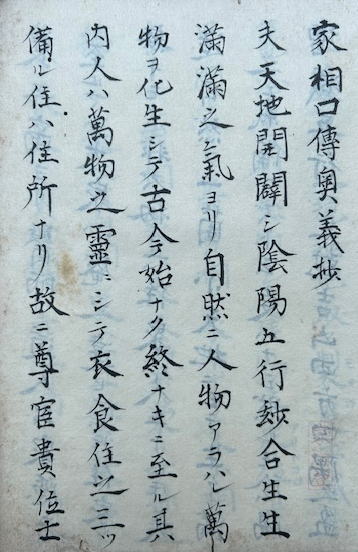 家相口傳奥義抄
夫天地開闢シ陰陽五行妙合生生
滿滿之氣ヨリ自然ニ人物アラハレ萬
物ヲ化生シテ古今始ナク終ナキニ至ル其
内人ハ萬物之靈ニシテ衣食住之三ツ
備ル住ハ住所ナリ故ニ尊宦貴位士